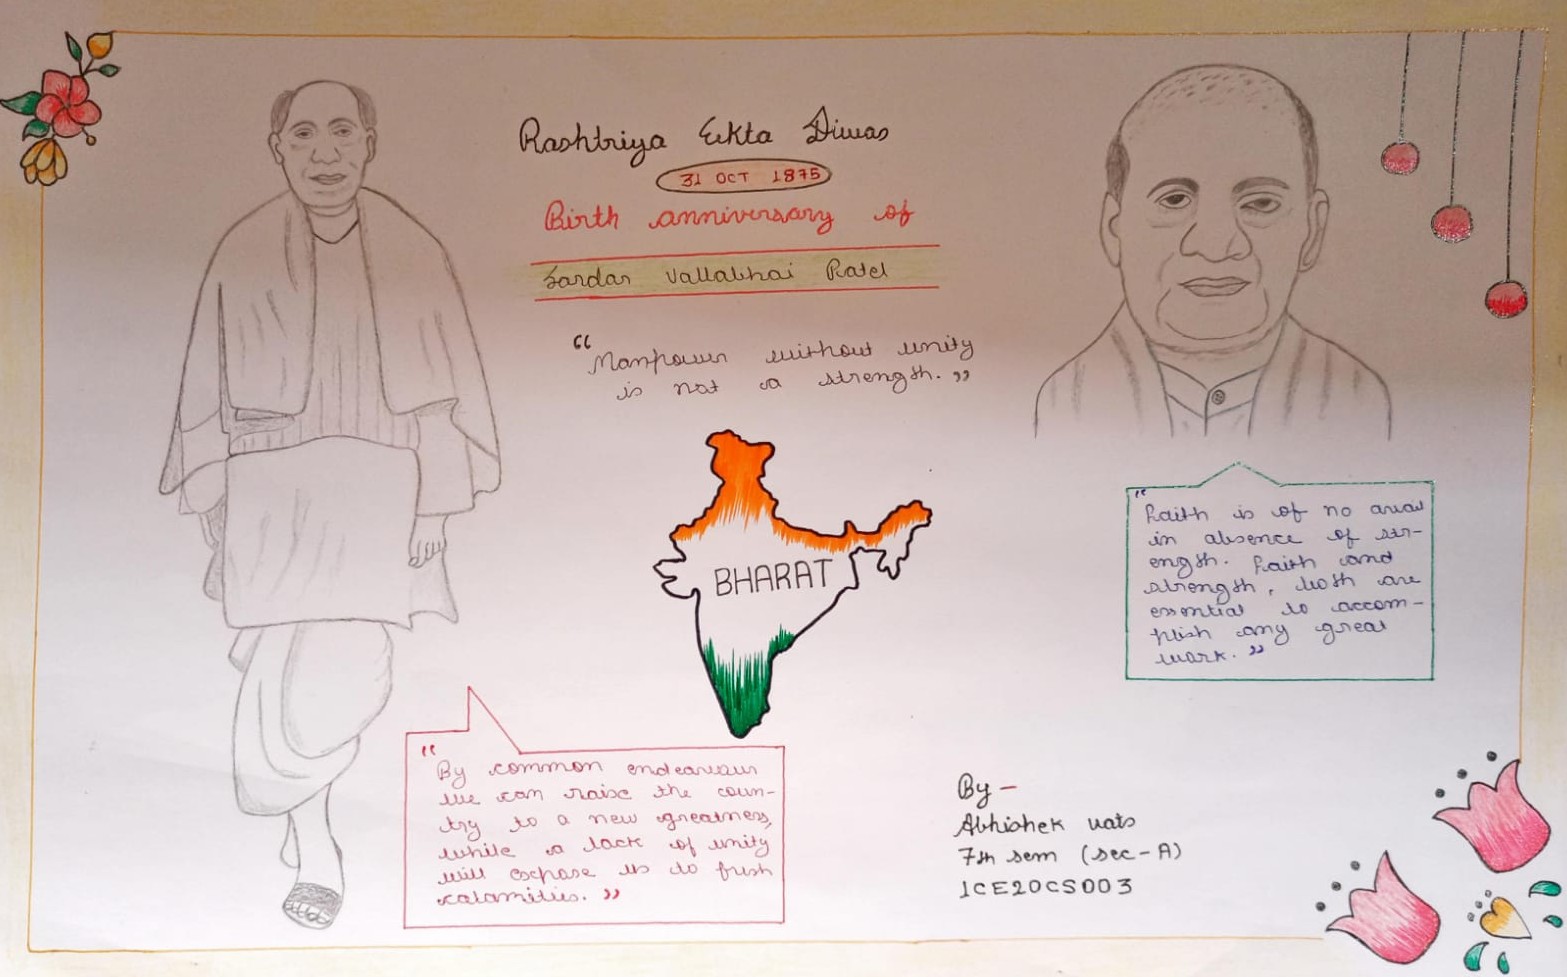 Rashtriya Ekta Diwas
31 OCT 1875
Birth anniversary of
Sardar Vallabhai Patel
“Manpower without unity
is not a strength.”
BHARAT
“Faith is of no avail
in absence of str-
ength. Faith and
strength, both are
essential to accom-
plish any great
work.”
“By common endeavour
we can raise the coun-
try to a new greatness,
while a lack of unity
will expose us to fresh
calamities.”
By -
Abhishek vats
7th sem (sec-A)
1CE20CS003